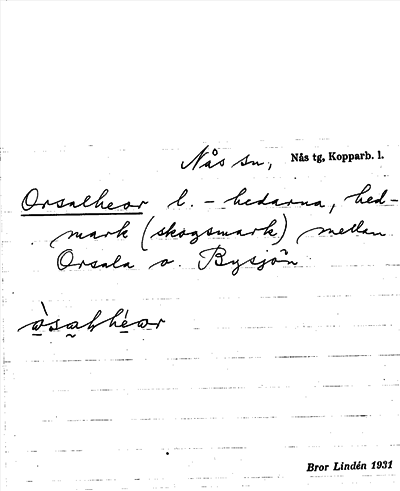 Nås sn, Nås tg, Kopparb. l.
Orsalheor l. - hedarna, hed-
mark (skogsmark) mellan
Orsala o. Bysjön
Bror Lindén 1931